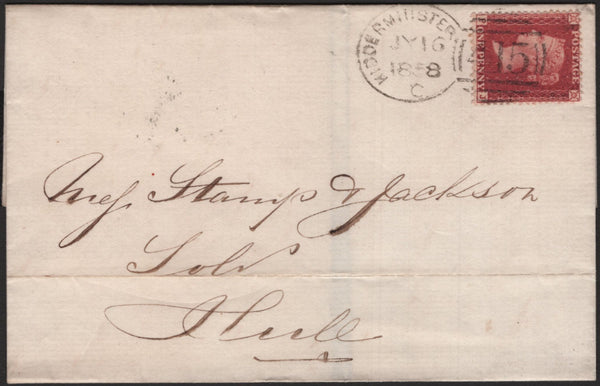 KIDDERMINSTER
JY 16
1858
C
POSTAGE
ONE PENNY
Mess Stamp & Jackson
Solrs
Hull